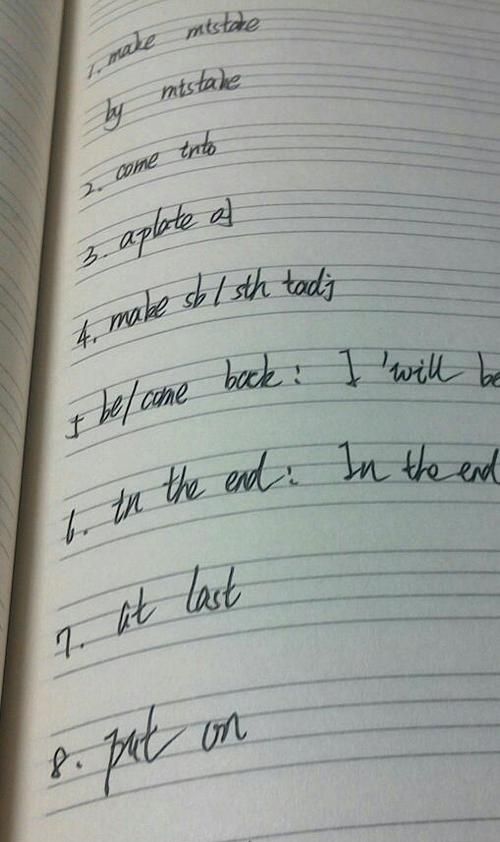 1. make mistake
by mistake
2. come into
3. a plate of
4. make sb / sth +adj
5 be/come back: I 'will be
6. in the end: In the end
7. at last
8. put on